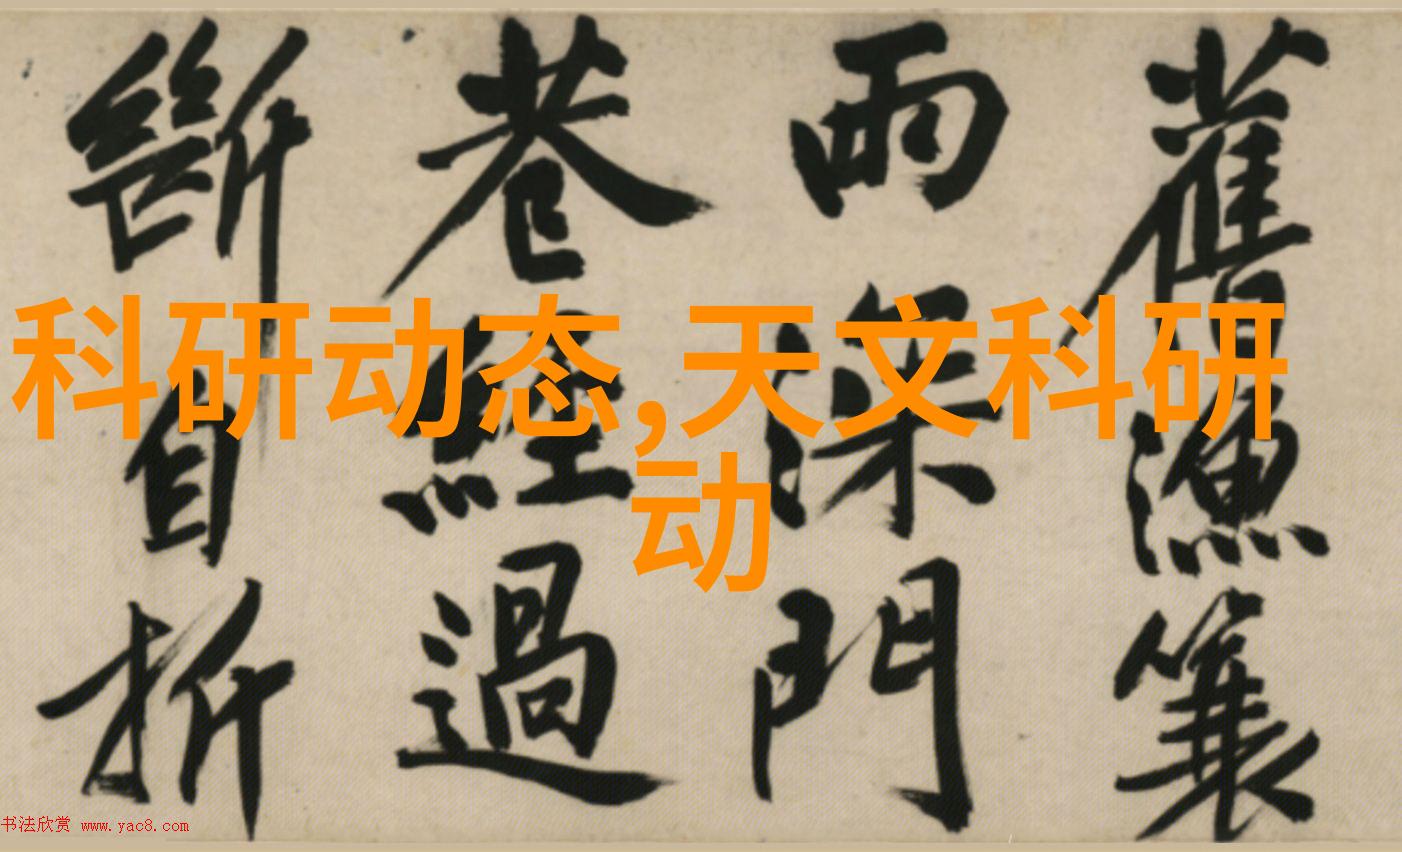 舊漁簑
雨深門
巷經過
斷自折
科研动态,天文科研
动
书法欣赏 www.yac8.com